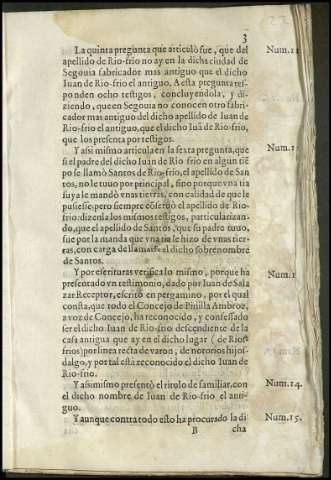 3
La quinta pregunta que articulò fue, que del
apellido de Rio-frio no ay en la dicha ciudad de
Segouia fabricador mas antiguo que el dicho
Iuan de Rio-frio el antiguo. A esta pregunta res-
ponden ocho testigos, concluyendola, y di-
ziendo, que en Segouia no conocen otro fabri-
cador mas antiguo del dicho apellido de Iuan de
Rio-frio el antiguo, que el dicho Iuã de Rio-frio,
que los presenta por testigos.
Num. 11
Y assi mismo articula en la sexta pregunta, que
si el padre del dicho Iuan de Rio frio en algun tiẽ
po se llamò Santos de Rio-frio, el apellido de San
tos, no le tuuo por principal, sino porque vna tia
suya le mandò vnas tierras, con calidad de que le
pusiesse: pero siempre cõseruò el apellido de Rio-
frio: dizenla los mismos testigos, particularizan-
do, que el apellido de Santos, que su padre tuuo,
fue por la manda que vna tia le hizo de vnas tier-
ras, con carga de llamarse el dicho sobrenombre
de Santos.
Num. 1
Y por escrituras verifica lo mismo, porque ha
presentado vn testimonio, dado por Iuan de Sala
zar Receptor, escrito en pergamino, por el qual
consta, que todo el Concejo de Pinilla Ambroz,
a voz de Concejo, ha reconocido, y confessado
ser el dicho Iuan de Rio-frio descendiente de la
casa antigua que ay en el dicho lugar (de Rios
frios) por linea recta de varon, de notorios hijos-
dalgo, y por tal està reconocido el dicho Iuan de
Rio-frio.
Num. 1
Y assimismo presentò el titolo de familiar, con
el dicho nombre de Iuan de Rio-frio el anti-
guo.
Num. 14.
Y aunque contra todo esto ha procurado la di
Num. 15.
B
cha